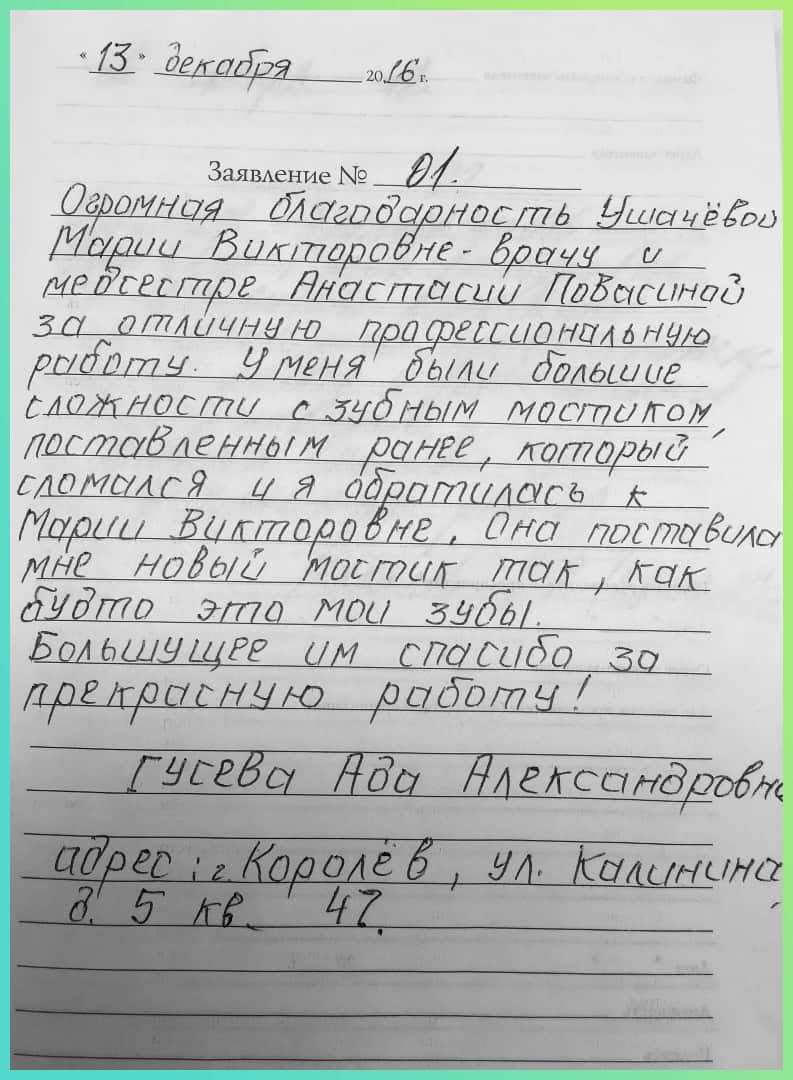 « 13 » декабря 2016 г.
Заявление № 01.
Огромная благодарность Ушачёвой
Марии Викторовне - врачу и
медсестре Анастасии Повасиной
за отличную профессиональную
работу. У меня были большие
сложности с зубным мостиком,
поставленным ранее, который
сломался и я обратилась к
Марии Викторовне. Она поставила
мне новый мостик так, как
будто это мои зубы.
Большущее им спасибо за
прекрасную работу!
Гусева Ада Александровна
адрес: г. Королёв, ул. Калинина,
д. 5 кв. 47.